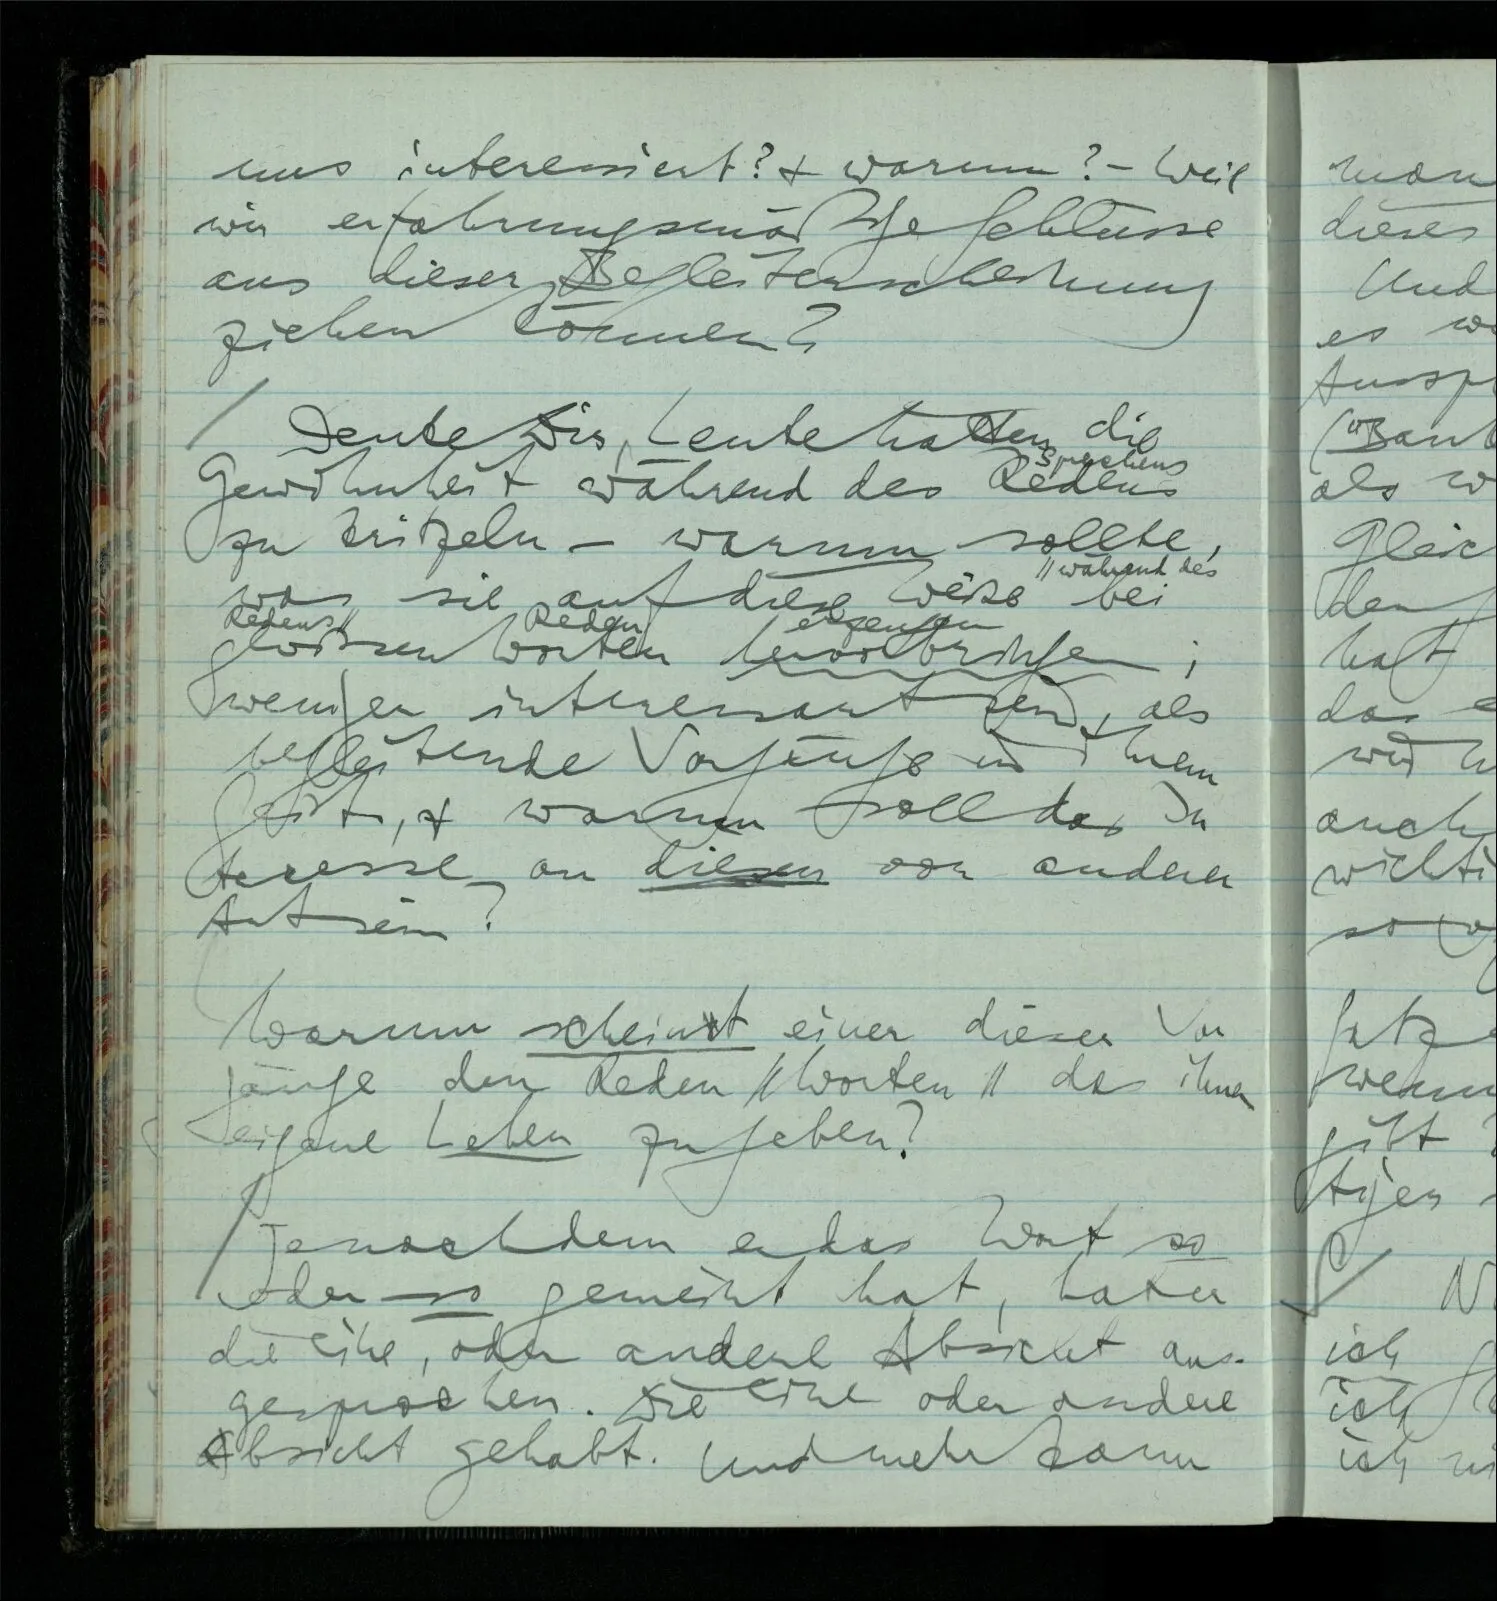 uns interessiert? & warum? – Weil
wir erfahrungsmäßige Schlüsse
aus dieser Begleiterscheinung
ziehen können?
/ Denke Dir, Leute hätten die
Gewohnheit während des Redens
Sprechens
zu kritzeln – warum sollte,
was sie auf diese Weise bei
// während des
Redens //
Reden
erzeugen
gewissen Worten hervorbringen,
weniger interessant sein, als
begleitende Vorgänge in ihrem
Geist, & warum soll das In
teresse an diesen von anderer
Art sein?
Warum scheint einer dieser Vor
gänge den Reden // Worten // das ihnen
eigene Leben zu geben?
/ Jenachdem er das Wort so
oder so gemeint hat, hat er
die eine, oder andere Absicht aus-
gesprochen. Die eine oder andere
Absicht gehabt. Und mehr kann
man
dieses
Und
es
als
hat
das
auch
ich
ich
ich